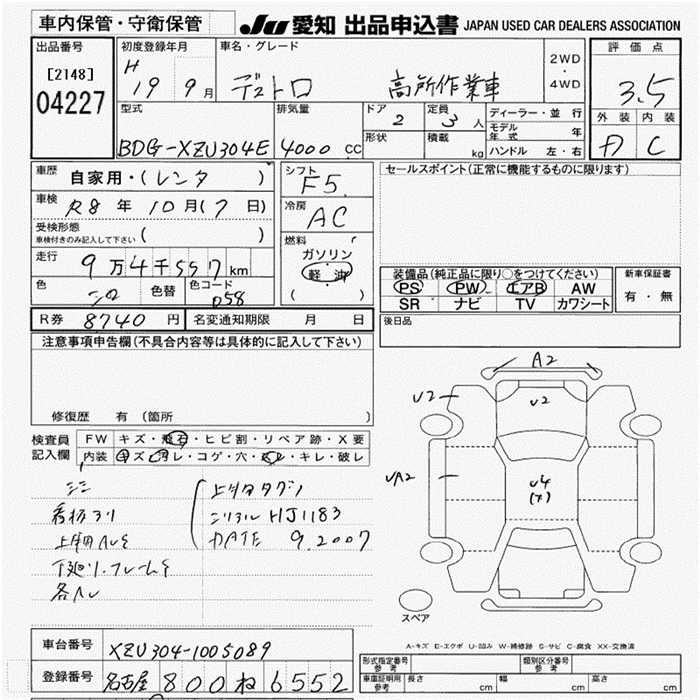 車内保管・守衛保管 JU 愛知 出品申込書 JAPAN USED CAR DEALERS ASSOCIATION
出品番号
[2148]
04227
初度登録年月
H 19 9月
車名・グレード
デュトロ 高所作業車
2WD
・
4WD
評価点
3.5
外装 内装
D C
型式
BDG-XZU304E
排気量
4000 CC
ドア
2
定員
3人
形状
積載
kg
ディーラー・並行
モデル年式 年
ハンドル 左・右
車歴
自家用・(レンタ )
車検
R8年10月(7日)
受検形態
車検付きのみ記入して下さい ( )
走行
9万4千557km
色
シロ
色替
色コード
058
シフト
F5
冷房
AC
燃料
ガソリン
・
軽油
( )
セールスポイント(正常に機能するものに限ります)
装備品(純正品に限り○をつけてください)
PS PW エアB AW
SR ナビ TV カワシート
新車保証書
有・無
R券 8740円
名変通知期限 月 日
後日品
注意事項申告欄(不具合内容等は具体的に記入して下さい)
修復歴 有(箇所
検査員
記入欄
FW キズ・飛石・ヒビ割・リペア跡・X要
内装 キズ・ヨゴレ・コゲ・穴・スレ・キレ・破レ
看板ヨリ
下廻リ、フレームキ
シリアル HJ1183
DATE 9.2007
A2
U2
U2
UA2
U4
スペア
A-キズ E-エクボ U-凹み W-補修跡 S-サビ C-腐食 XX-交換済
車台番号
XZU304-1005089
登録番号
名古屋 800 ね 6552
形式指定番号
参考
類別区分番号
参考
車庫証明用
参考
長さ cm 幅 cm 高さ cm